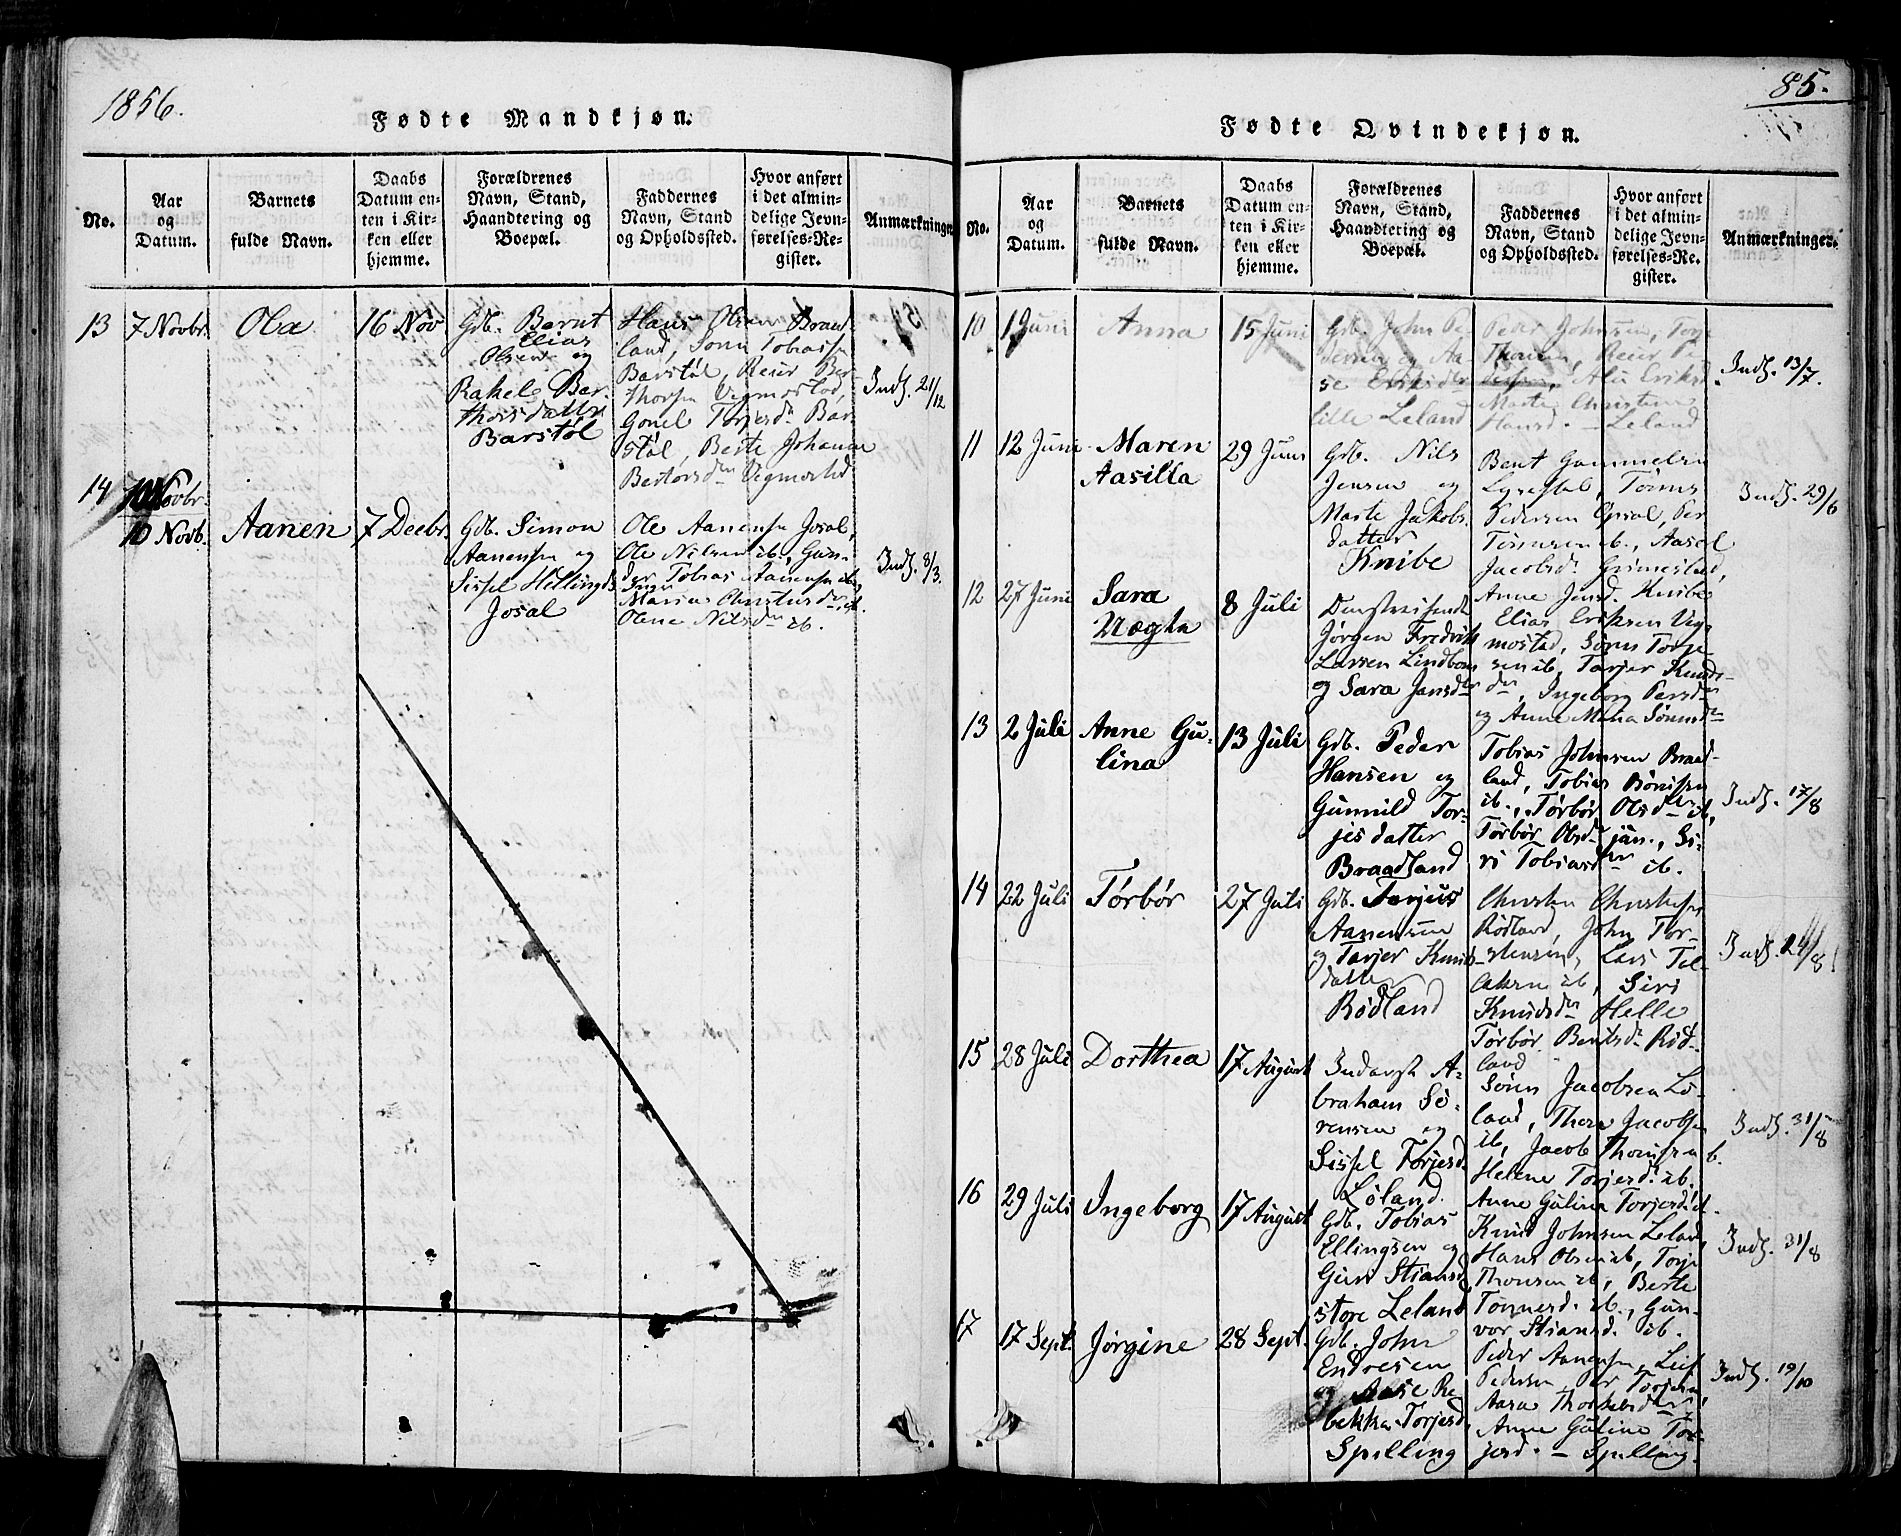 1856.
Fødte Mandkjøn.
No.
Aar
og
Datum.
Barnets
fulde Navn.
Daabs
Datum en-
ten i Kir-
ken eller
hjemme.
Forældrenes
Navn, Stand,
Haandtering og
Boepæl.
Faddernes
Navn, Stand
og Opholdssted.
Hvor anført
i det almin-
delige Jevn-
førelses-Re-
gister.
Anmærkninger
13 7 Novbr. Ola 16 Nov
Gdb. Bernt
Elias
Olsen og
Rakele Bar-
thorsdatter
Barstøl
Hans Olsen Braad-
land, Sønn Tobiassn
Barstøl, Reier Ber-
thorsen Vegmostad,
Gonel Torjersd. Bar-
støl, Berte Johanne
Bertorsdtr Vegmostad
Indf. 21/12
14 10 Novbr.
10 Novb. Aanen 7 Decbr.
Gdb. Simon
Aanensen og
Sissel Hellingsd
Josal
Ole Aanensen Josal,
Ole Nilsen ib., Gun-
der Tobias Aanensen ib.,
Maria
Olene Nilsdtr ib.
Indf. 8/3.
85.
Fødte Qvindekjøn.
No.
Aar
og
Datum.
Barnets
fulde Navn.
Daabs
Datum en-
ten i Kir-
ken eller
hjemme.
Forældrenes
Navn, Stand,
Haandtering og
Boepæl.
Faddernes
Navn, Stand
og Opholdssted.
Hvor anført
i det almin-
delige Jevn-
førelses-Re-
gister.
Anmærkninger.
10 1 Juni Anna 15 Juni
Gdb. John Pe-
dersen og Aa-
se Eriksdtr
lille Leland
Peder Johnsen, Torje
Thorsen, Reier Pe-
dersen, Ali Eriksd
Marte Christens
Hansd. — Leland
Indf. 13/7.
11 12 Juni Maren
Aasilla
29 Juni
Gdb. Nils
Jensen og
Marte Jakobs-
datter
Knibe
Bent Gammelsen
Lyrestøl, Tønnes
Pedersen Opsal, Per
Tønnesen ib., Aasel
Jacobsd. Grimestad,
Anne Jensd. Knibe
Indf. 29/6
12 27 Juni Sara
Uægta
8 Juli
Jørgen Fredrik
Larsen Lindbom
og Sara Jansdtr
Elias Eriksen Veg-
mostad, Sønn Torje-
sen ib, Torjer Knuds-
dtr, Ingeborg Persdtr
og Anne Maria Sønnsdtr
13 2 Juli Anne Gu-
lina
13 Juli
Gdb. Peder
Hansen og
Gunnild Tor-
jesdatter
Braadland
Tobias Johnsen Braad-
land, Tobias Bønisen
ib., Tørbør Olsdtr ib,
Tørbør Olsd. jun., Si-
ri Tobiasdtr ib.
Indf. 17/8
14 22 Juli Tørbør 27 Juli
Gdb. Tarjus
Aanensen
og Tarjer Knuds-
datter
Rødland
Christen Christensen
Rødland, John Tor-
stensen, Lars Tel-
laksen ib, Siri
Knudsdtr Helle
Tørbør Bentsd. Rød-
land
Indf. 24/8
15 28 Juli Dorthea 17 August
Inderst A-
braham Sø-
rensen og
Sissel Torjersd.
Løland.
Sønn Jacobsen Lø-
land, Thore Jacobsen
ib, Jacob Thomsen ib.
Helene Torjersd. ib.
Anne Gulina Torjersd. ib.
Indf. 31/8
16 29 Juli Ingeborg 17 August
Gdb. Tobias
Ellingsen og
Guri Stiansd
store Leland
Knud Johnsen Leland,
Hans Olsen ib, Torje
Thorsen ib, Berte
Tønnesd. ib., Gun-
vor Stiansd. ib.
Indf. 31/8
17 17 Sept. Jørgine 28 Sept.
Gdb. John
Endresen
og Aase Re-
bekka Torjersd.
Spilling
Peder Aanensen, Leif
Pedersen, Per Torjesen,
Aasa Thorkelsdtr,
Anne Guline Tor-
jersd. — Spilling.
Indf. 19/10